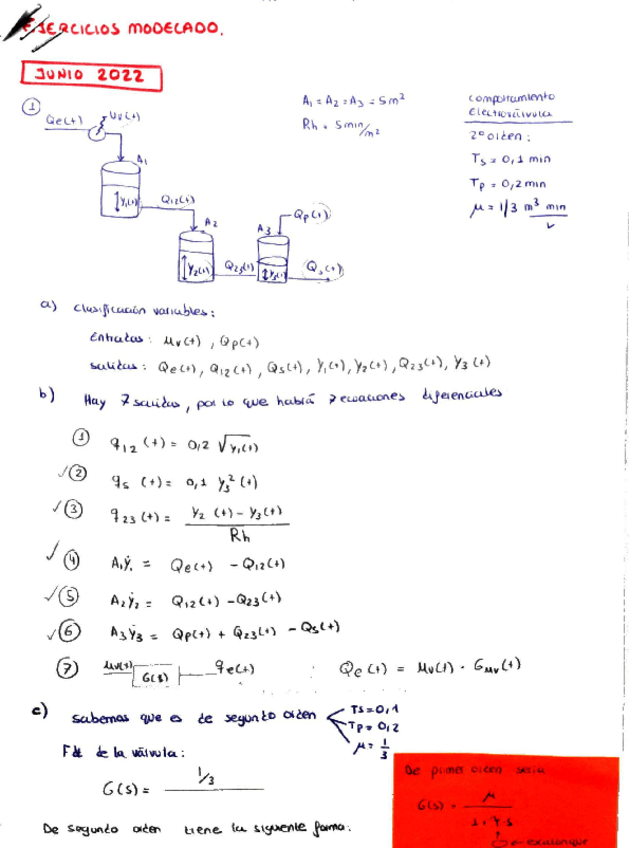 EJERCICIOS MODELADO.
JUNIO 2022
①
Qe(t)
uv(t)
A1
Y1(t)
Q12(t)
A2
Y2(t)
Q23(t)
A3
Qp(t)
Y3(t)
Qs(t)
A1 = A2 = A3 = 5m²
Rh = 5min/m²
comportamiento
Electroválvula
2º orden:
Ts = 0,1 min
Tp = 0,2 min
μ = 1/3 m³ min
v
a) clasificación variables:
Entradas: μv(t), Qp(t)
salidas: Qe(t), Q12(t), Qs(t), Y1(t), Y2(t), Q23(t), Y3(t)
b) Hay 7 salidas, por lo que habrá 7 ecuaciones diferenciales
① q12 (t) = 0,2 √y1(t)
✓② qs (t) = 0,1 y3²(t)
✓③ q23(t) = y2 (t) - y3(t)
Rh
✓④ A1ẏ1 = Qe(t) - Q12(t)
✓⑤ A2ẏ2 = Q12(t) - Q23(t)
✓⑥ A3ẏ3 = Qp(t) + Q23(t) - Qs(t)
⑦ μv(t) G(s) qe(t) : Qe(t) = μv(t) · Gμv(t)
c) sabemos que es de segundo orden
Ts=0,1
Tp=0,2
μ = 1/3
Fdt de la válvula:
G(s) = 1/3
De segundo orden tiene la siguiente forma:
De primer orden sería
G(s) = μ
1+γ·s